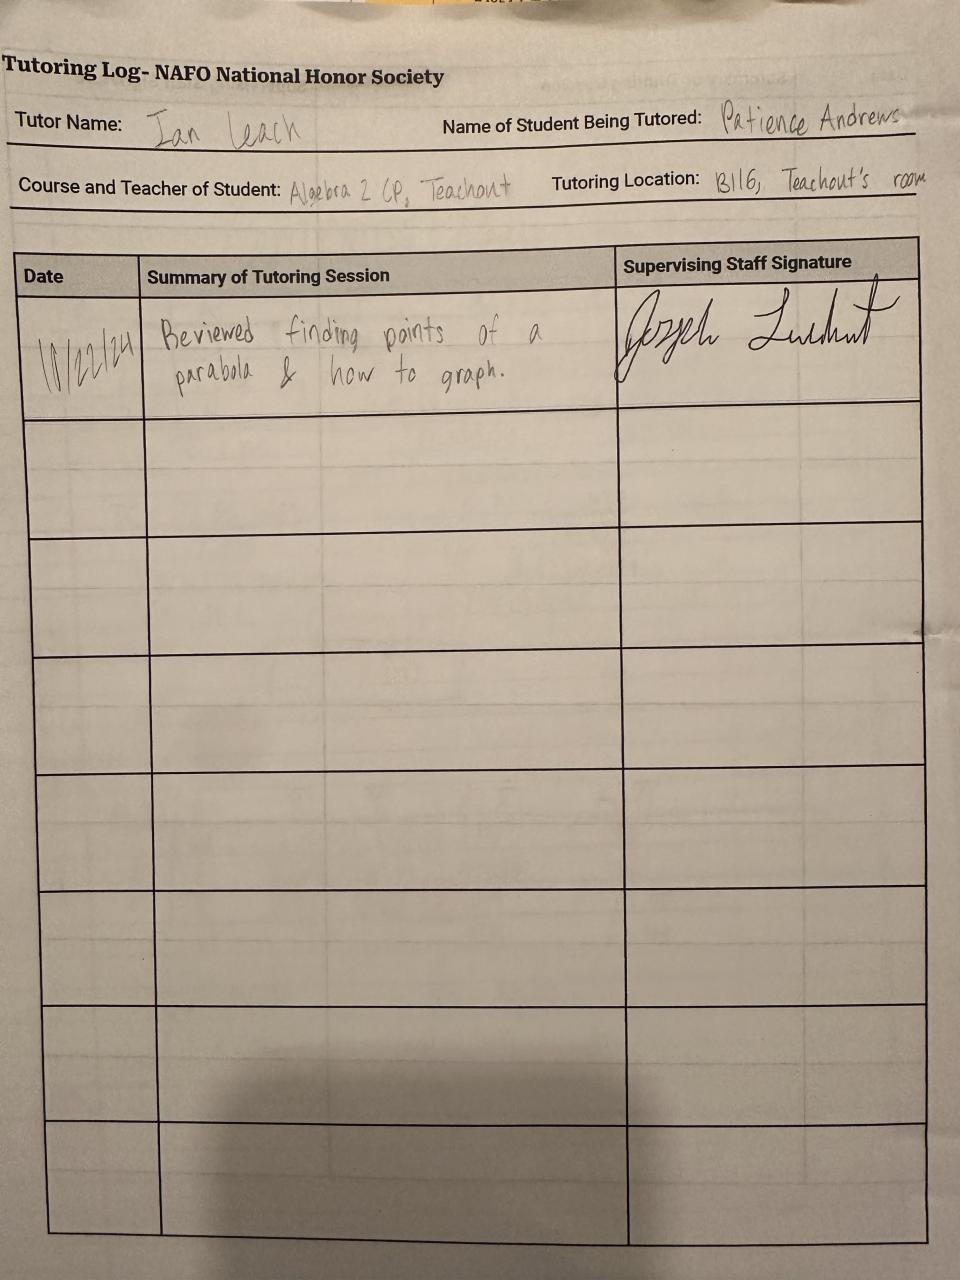 Tutoring Log- NAFO National Honor Society
Tutor Name: Ian Leach Name of Student Being Tutored: Patience Andrews
Course and Teacher of Student: Algebra 2 CP, Teachout Tutoring Location: B116, Teachout's room
Date Summary of Tutoring Session Supervising Staff Signature
Reviewed finding points of a
parabola & how to graph.
Joseph